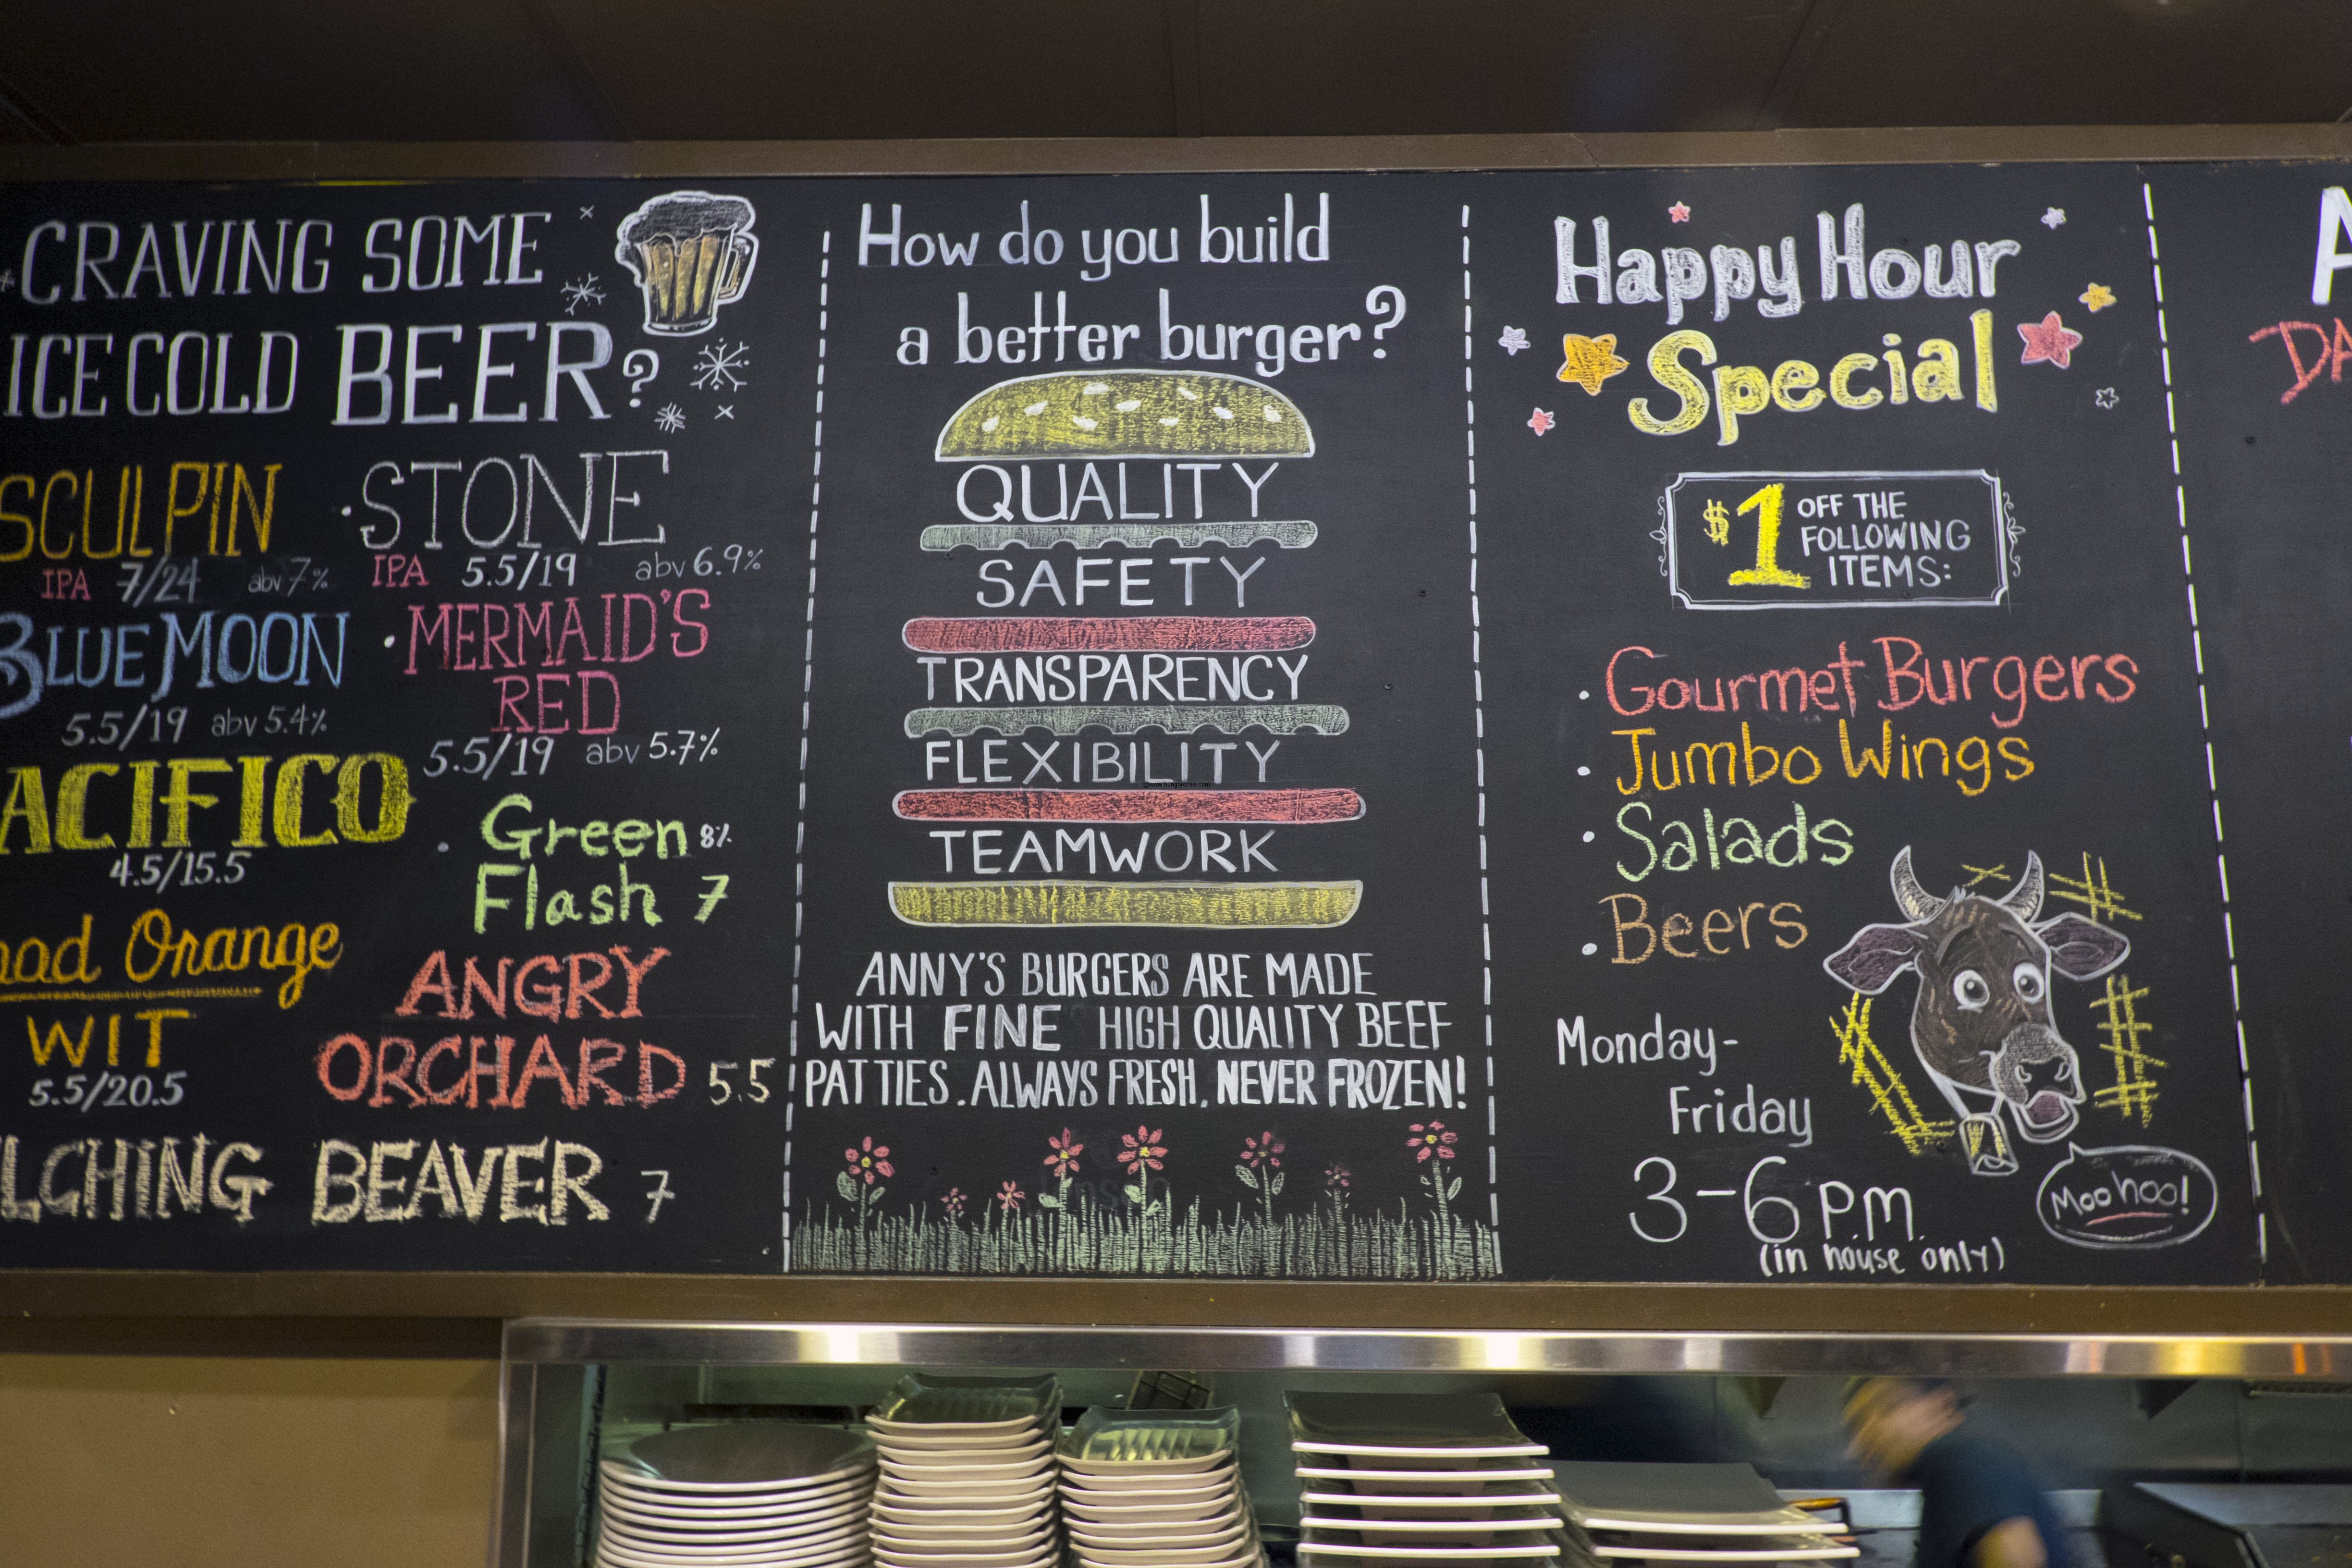 CRAVING SOME
ICE COLD BEER?
SCULPIN
IPA 7/24 abv 7%
BLUE MOON
5.5/19 abv 5.4%
ACIFICO
4.5/15.5
Orange
WIT
5.5/20.5
·STONE
IPA 5.5/19 abv 6.9%
·MERMAID'S
RED
5.5/19 abv 5.7%
· Green 8%
Flash 7
ANGRY
ORCHARD 5.5
LCHING BEAVER 7
How do you build
a better burger?
QUALITY
SAFETY
TRANSPARENCY
FLEXIBILITY
TEAMWORK
ANNY'S BURGERS ARE MADE
WITH FINE HIGH QUALITY BEEF
PATTIES. ALWAYS FRESH, NEVER FROZEN!
Happy Hour
Special
$1 OFF THE
FOLLOWING
ITEMS:
· Gourmet Burgers
· Jumbo Wings
· Salads
· Beers
Monday-
Friday
3-6 P.M.
(in house only)
Moo hoo!
A
DA